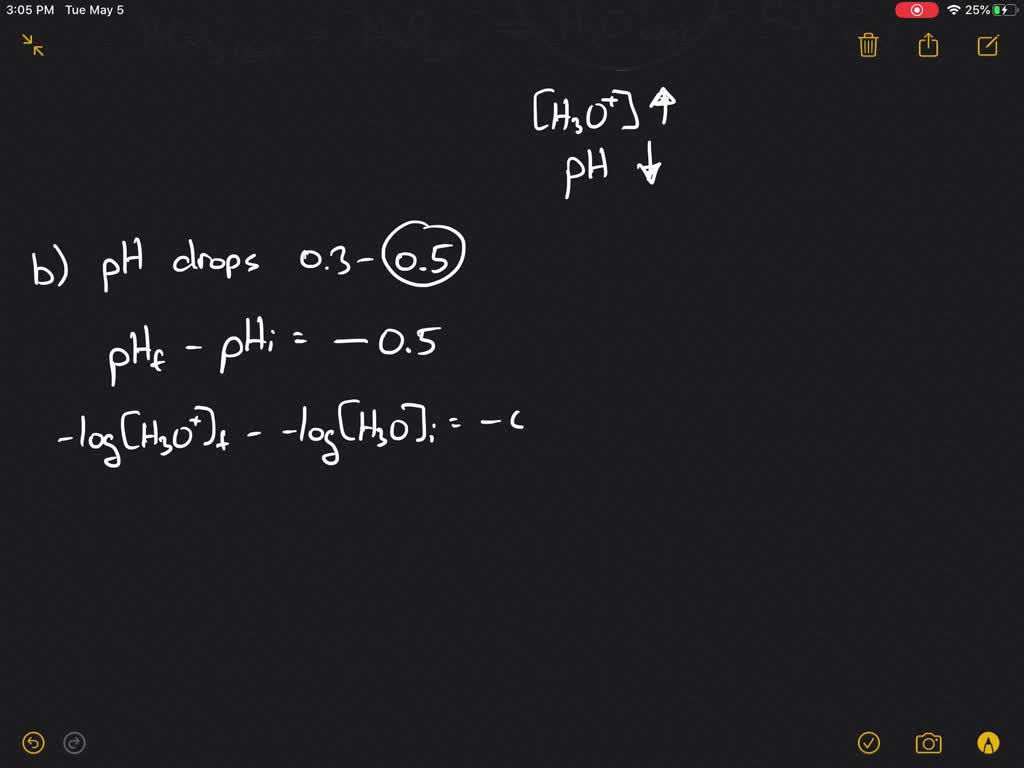 3:05 PM Tue May 5
25%
[H₃O⁺] ↑
pH ↓
b) pH drops 0.3 - 0.5
pH_f - pH_i = - 0.5
-log[H₃O⁺]_f - -log[H₃O]_i = -